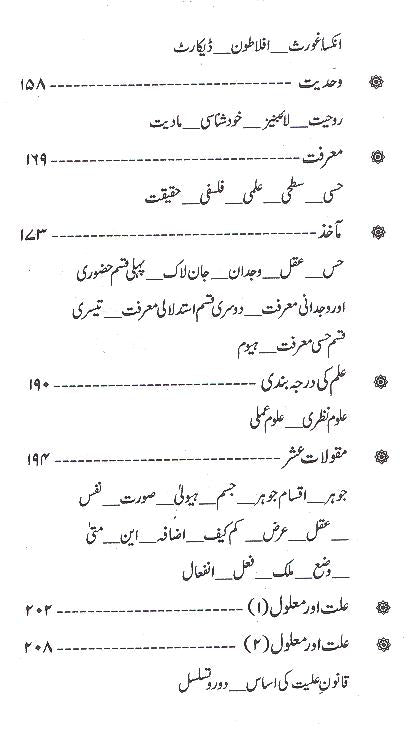 انکساغورث__افلاطون__ڈیکارٹ
وحدیت ---------------------------- ۱۵۸
روحیت__لائبنیز__خودشناسی__مادیت
معرفت ---------------------------- ۱۶۹
حسی__سطحی__علمی__فلسفی__حقیقت
مآخذ ---------------------------- ۱۷۳
حس__عقل__وجدان__جان لاک__پہلی قسم حضوری
اور وجدانی معرفت__دوسری قسم استدلالی معرفت__تیسری
قسم حسی معرفت__ہیوم
علم کی درجہ بندی ---------------------------- ۱۹۰
علوم نظری__علوم عملی
مقولات عشر ---------------------------- ۱۹۴
جوہر__اقسام جوہر__جسم__ہیولیٰ__صورت__نفس
__عقل__عرض__کم کیف__اضافہ__این__متیٰ
__وضع__ملک__فعل__انفعال
علت اور معلول (۱) ---------------------------- ۲۰۲
علت اور معلول (۲) ---------------------------- ۲۰۸
قانونِ علیت کی اساس__دور و تسلسل